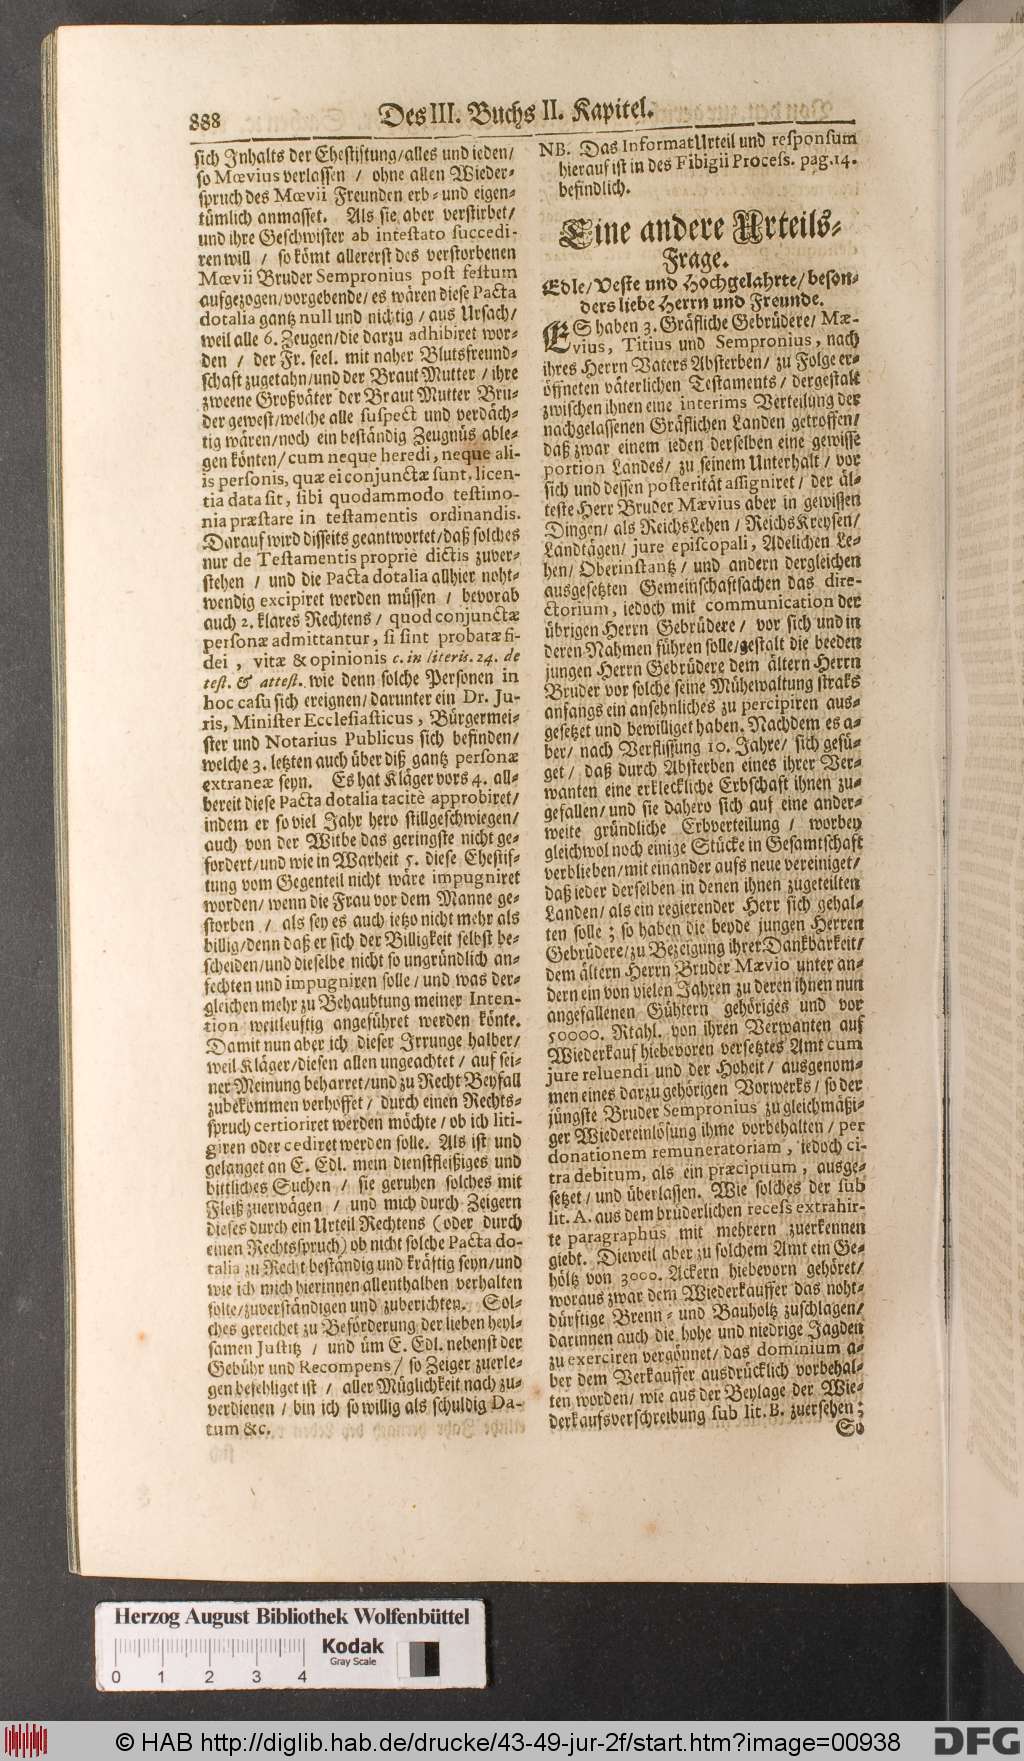 888 Des III. Buchs II. Kapitel.
sich Inhalts der Ehestiftung/alles und ieden/
so Mævius verlassen / ohne allen Wieder-
spruch des Mævii Freunden erb- und eigen-
tümlich anmasset. Als sie aber verstirbet/
und ihre Geschwister ab intestato succedi-
ren will / so kömt allererst des verstorbenen
Mævii Bruder Sempronius post festum
aufgezogen/vorgebende/es wären diese Pacta
dotalia gantz null und nichtig / aus Ursach/
weil alle 6. Zeugen/die darzu adhibiret wor-
den / der Fr. seel. mit naher Blutsfreund-
schaft zugetahn/und der Braut Mutter / ihre
zweene Großväter der Braut Mutter Brü-
der gewest/welche alle suspect und verdäch-
tig wären/noch ein beständig Zeugnüs able-
gen könten/cum neque heredi, neque ali-
is personis, quæ ei conjunctæ sunt, licen-
tia data sit, sibi quodammodo testimo-
nia præstare in testamentis ordinandis.
Darauf wird disseits geantwortet/daß solches
nur de Testamentis propriè dictis zuver-
stehen / und die Pacta dotalia allhier noht-
wendig excipiret werden müssen / bevorab
auch 2. klares Rechtens / quod conjunctæ
personæ admittantur, si sint probatæ fi-
dei , vitæ & opinionis c. in literis. 24. de
test. & attest. wie denn solche Personen in
hoc casu sich ereignen/darunter ein Dr. Ju-
ris, Minister Ecclesiasticus, Bürgermei-
ster und Notarius Publicus sich befinden/
welche 3. letzten auch über diß gantz personæ
extraneæ seyn. Es hat Kläger vors 4. all-
bereit diese Pacta dotalia tacitè approbiret/
indem er so viel Jahr hero stillgeschwiegen/
auch von der Witbe das geringste nicht ge-
fordert/und wie in Warheit 5. diese Ehestif-
tung vom Gegenteil nicht wäre impugniret
worden/wenn die Frau vor dem Manne ge-
storben / als sey es auch ietzo nicht mehr als
billig/denn daß er sich der Billigkeit selbst be-
scheiden/und dieselbe nicht so ungründlich an-
fechten und impugniren solle/und was der-
gleichen mehr zu Behaubtung meiner Inten-
tion weitleuftig angeführet werden könte.
Damit nun aber ich dieser Irrunge halber/
weil Kläger/diesen allen ungeachtet / auf sei-
ner Meinung beharret/und zu Recht Beyfall
zubekommen verhoffet / durch einen Rechts-
spruch certioriret werden möchte/ob ich liti-
giren oder cediret werden solle. Als ist und
gelanget an E. Edl. mein dienstfleißiges und
bittliches Suchen / sie geruhen solches mit
Fleiß zuerwägen / und mich durch Zeigern
dieses durch ein Urteil Rechtens (oder durch
einen Rechtsspruch) ob nicht solche Pacta do-
talia zu Recht beständig und kräftig seyn/und
wie ich mich hierinnen allenthalben verhalten
solle/zuverständigen und zuberichten. Sol-
ches gereichet zu Beförderung der lieben heyl-
samen Justitz / und üm E. Edl. nebenst der
Gebühr und Recompens/ so Zeiger zuerle-
gen befehliget ist / aller Müglichkeit nach zu-
verdienen / bin ich so willig als schuldig Da-
tum &c.
NB. Das Informat Urteil und responsum
hierauf ist in des Fibigii Process. pag. 14.
befindlich.
Eine andere Urteils-
Frage.
Edle/Veste und Hochgelahrte/beson-
ders liebe Herrn und Freunde.
ES haben 3. Gräfliche Gebrüdere/ Mæ-
vius, Titius und Sempronius, nach
ihres Herrn Vaters Absterben/ zu Folge er-
öffneten väterlichen Testaments / dergestalt
zwischen ihnen eine interims Verteilung der
nachgelassenen Gräflichen Landen getroffen/
daß zwar einem ieden derselben eine gewisse
portion Landes/ zu seinem Unterhalt / vor
sich und dessen posterität assigniret / der äl-
teste Herr Bruder Mævius aber in gewissen
Dingen/ als ReichsLehen / ReichsKreysen/
Landtägen/ jure episcopali, Adelichen Le-
hen/ Oberinstantz / und andern dergleichen
ausgesetzten Gemeinschaftsachen das dire-
ctorium, iedoch mit communication der
übrigen Herrn Gebrüdere / vor sich und in
deren Nahmen führen solle/gestalt die beeden
jungen Herrn Gebrüdere dem ältern Herrn
Bruder vor solche seine Mühewaltung straks
anfangs ein ansehnliches zu percipiren aus-
gesetzet und bewilliget haben. Nachdem es a-
ber/ nach Verfliessung 10. Jahre/ sich gefü-
get / daß durch Absterben eines ihrer Ver-
wanten eine erkleckliche Erbschaft ihnen zu-
gefallen/und sie dahero sich auf eine ander-
weite gründliche Erbverteilung / worbey
gleichwol noch einige Stücke in Gesamtschaft
verblieben/mit einander aufs neue vereiniget/
daß ieder derselben in denen ihnen zugeteilten
Landen/ als ein regierender Herr sich gehal-
ten solle ; so haben die beyde jungen Herren
Gebrüdere/zu Bezeigung ihrer Dankbarkeit/
dem ältern Herrn Bruder Mævio unter an-
dern ein von vielen Jahren zu deren ihnen nun
angefallenen Gühtern gehöriges und vor
50000. Rtahl. von ihren Verwanten auf
Wiederkauf hiebevoren versetztes Amt cum
jure reluendi und der Hoheit / ausgenom-
men eines darzu gehörigen Vorwerks / so der
jüngste Bruder Sempronius zu gleichmäßi-
ger Wiedereinlösung ihme vorbehalten / per
donationem remuneratoriam, iedoch ci-
tra debitum, als ein præcipuum, ausge-
setzet / und überlassen. Wie solches der sub
lit. A. aus dem brüderlichen recess extrahir-
te paragraphus mit mehrern zuerkennen
giebt. Dieweil aber zu solchem Amt ein Ge-
höltz von 3000. Ackern hiebevorn gehöret/
woraus zwar dem Wiederkauffer das noht-
dürftige Brenn- und Bauholtz zuschlagen/
darinnen auch die hohe und niedrige Jagden
zu exerciren vergönnet/das dominium a-
ber dem Verkauffer ausdrücklich vorbehal-
ten worden/ wie aus der Beylage der Wie-
derkaufsverschreibung sub lit. B. zuersehen ;
So
Herzog August Bibliothek Wolfenbüttel
0 1 2 3 4
Kodak
Gray Scale
© HAB http://diglib.hab.de/drucke/43-49-jur-2f/start.htm?image=00938
DFG